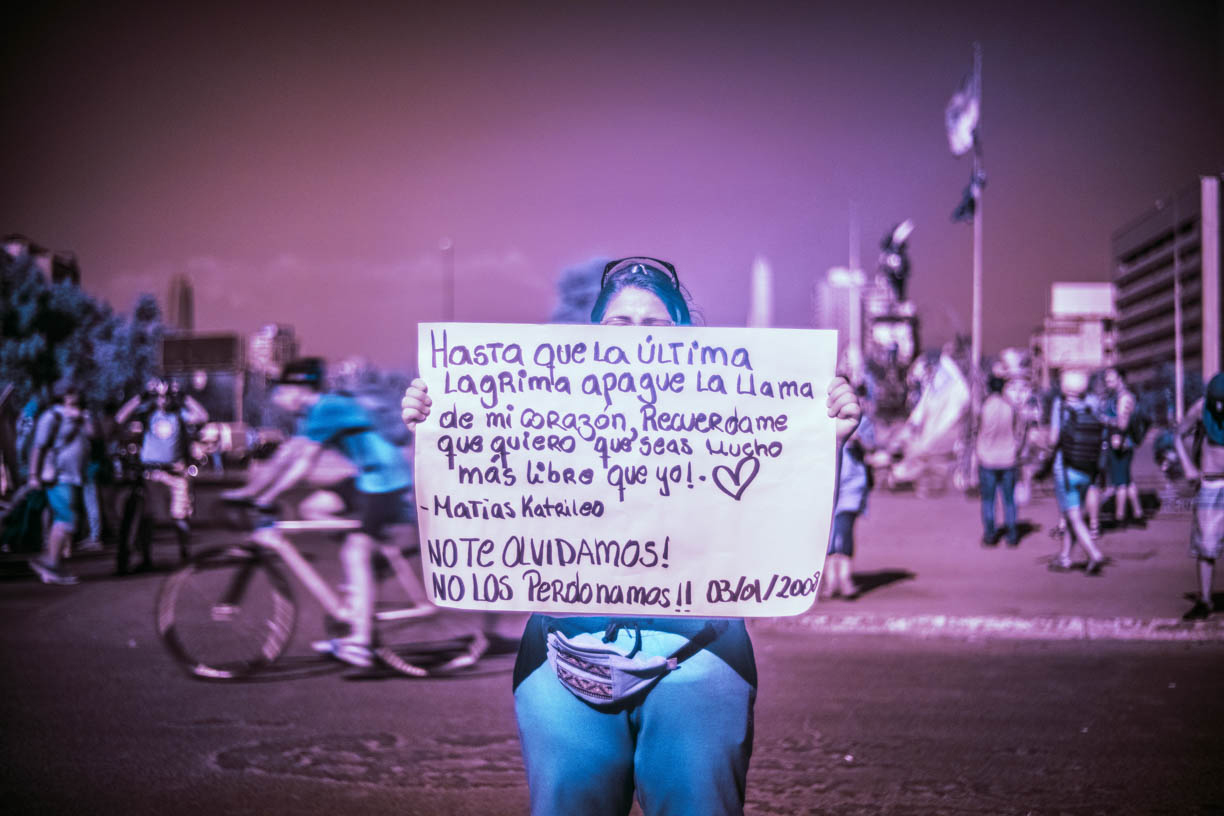 HASTA QUE LA ÚLTIMA
LAGRIMA APAGUE LA LLAMA
de mi CORAZÓN, RECUERDAME
QUE QUIERO QUE SEAS MUCHO
MÁS LIBRE QUE YO!. ♡
- MATIAS KATRILEO
NO TE OLVIDAMOS!
NO LOS PERDONAMOS!! 03/01/2008